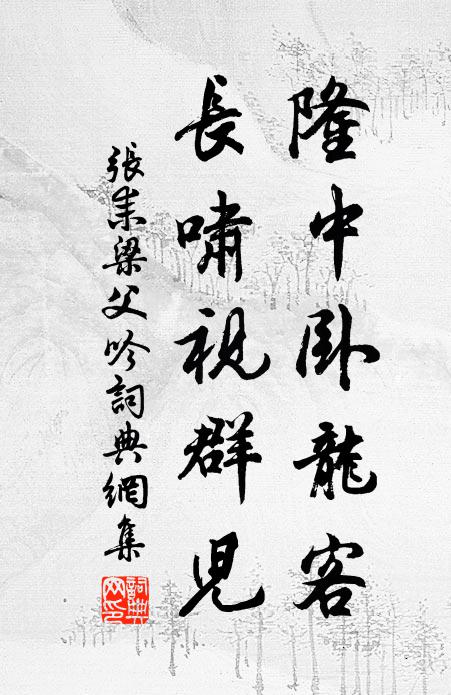 隆中卧龍客
長嘯視群兒
張耒梁父吟詞典網集
詞典网印